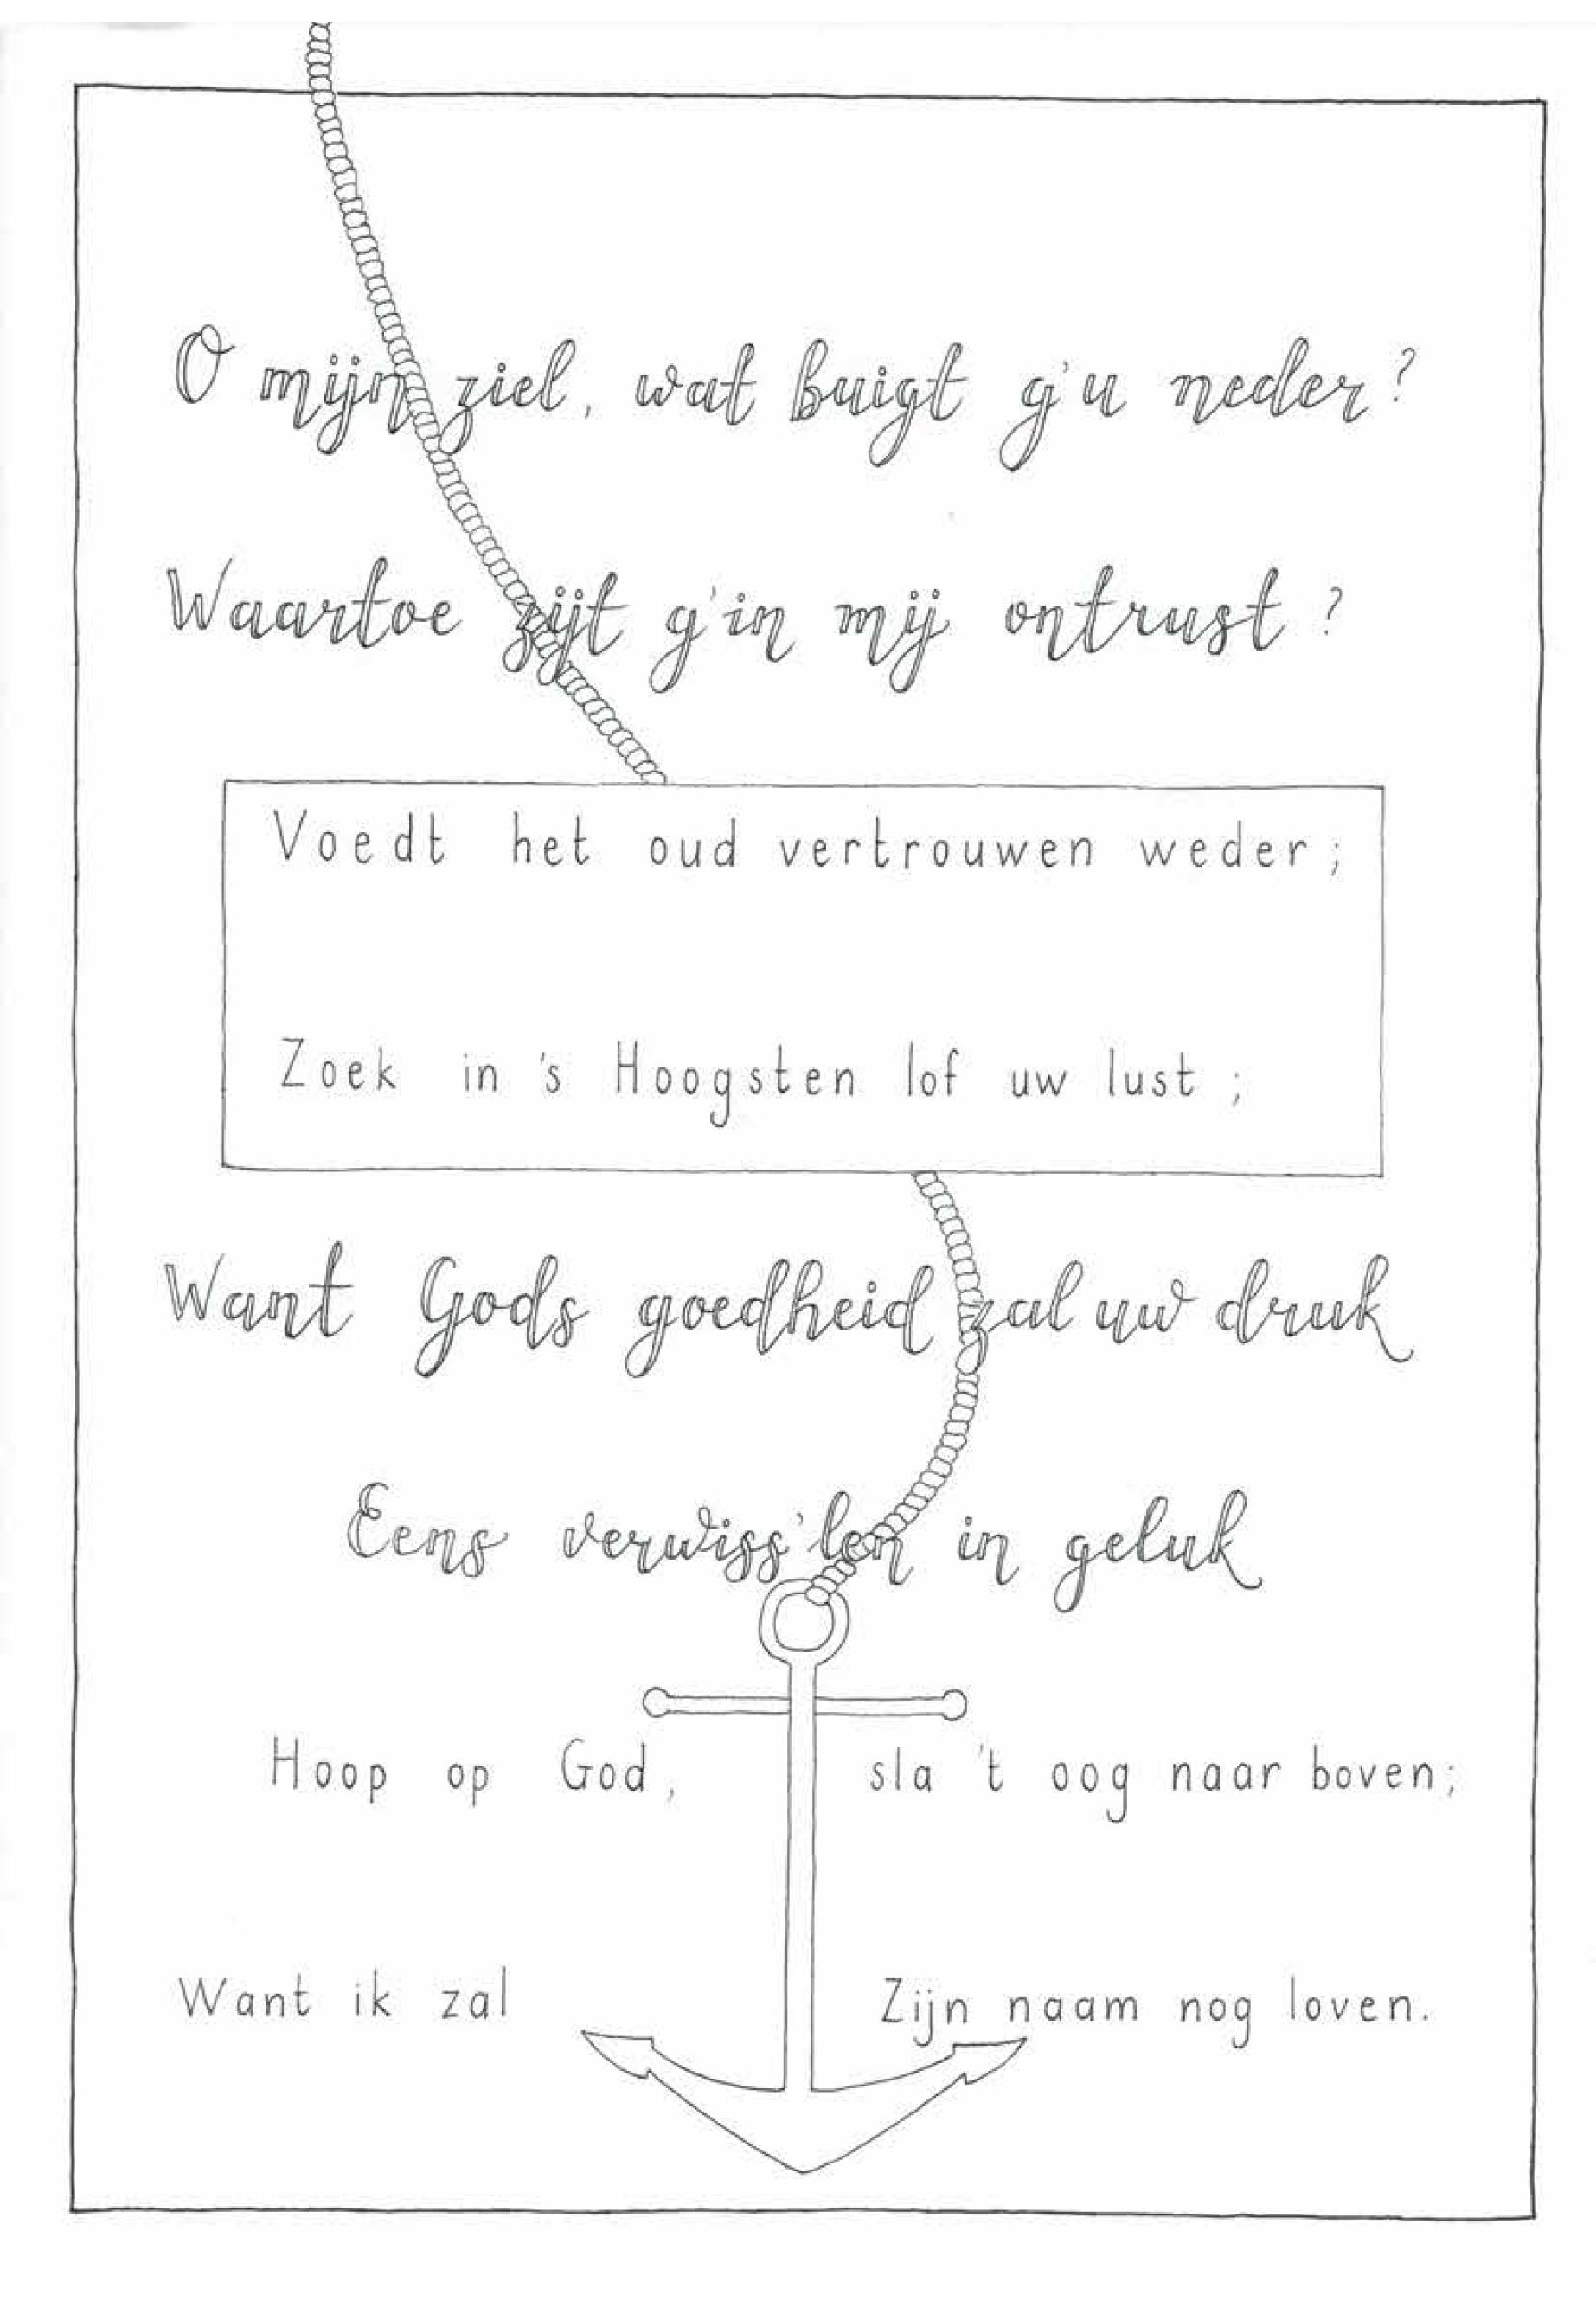 O mijn ziel, wat buigt g'u neder?
Waartoe zijt g'in mij ontrust?
Voedt het oud vertrouwen weder;
Zoek in 's Hoogsten lof uw lust;
Want Gods goedheid zal uw druk
Eens verwiss'len in geluk
Hoop op God, sla 't oog naar boven;
Want ik zal Zijn naam nog loven.